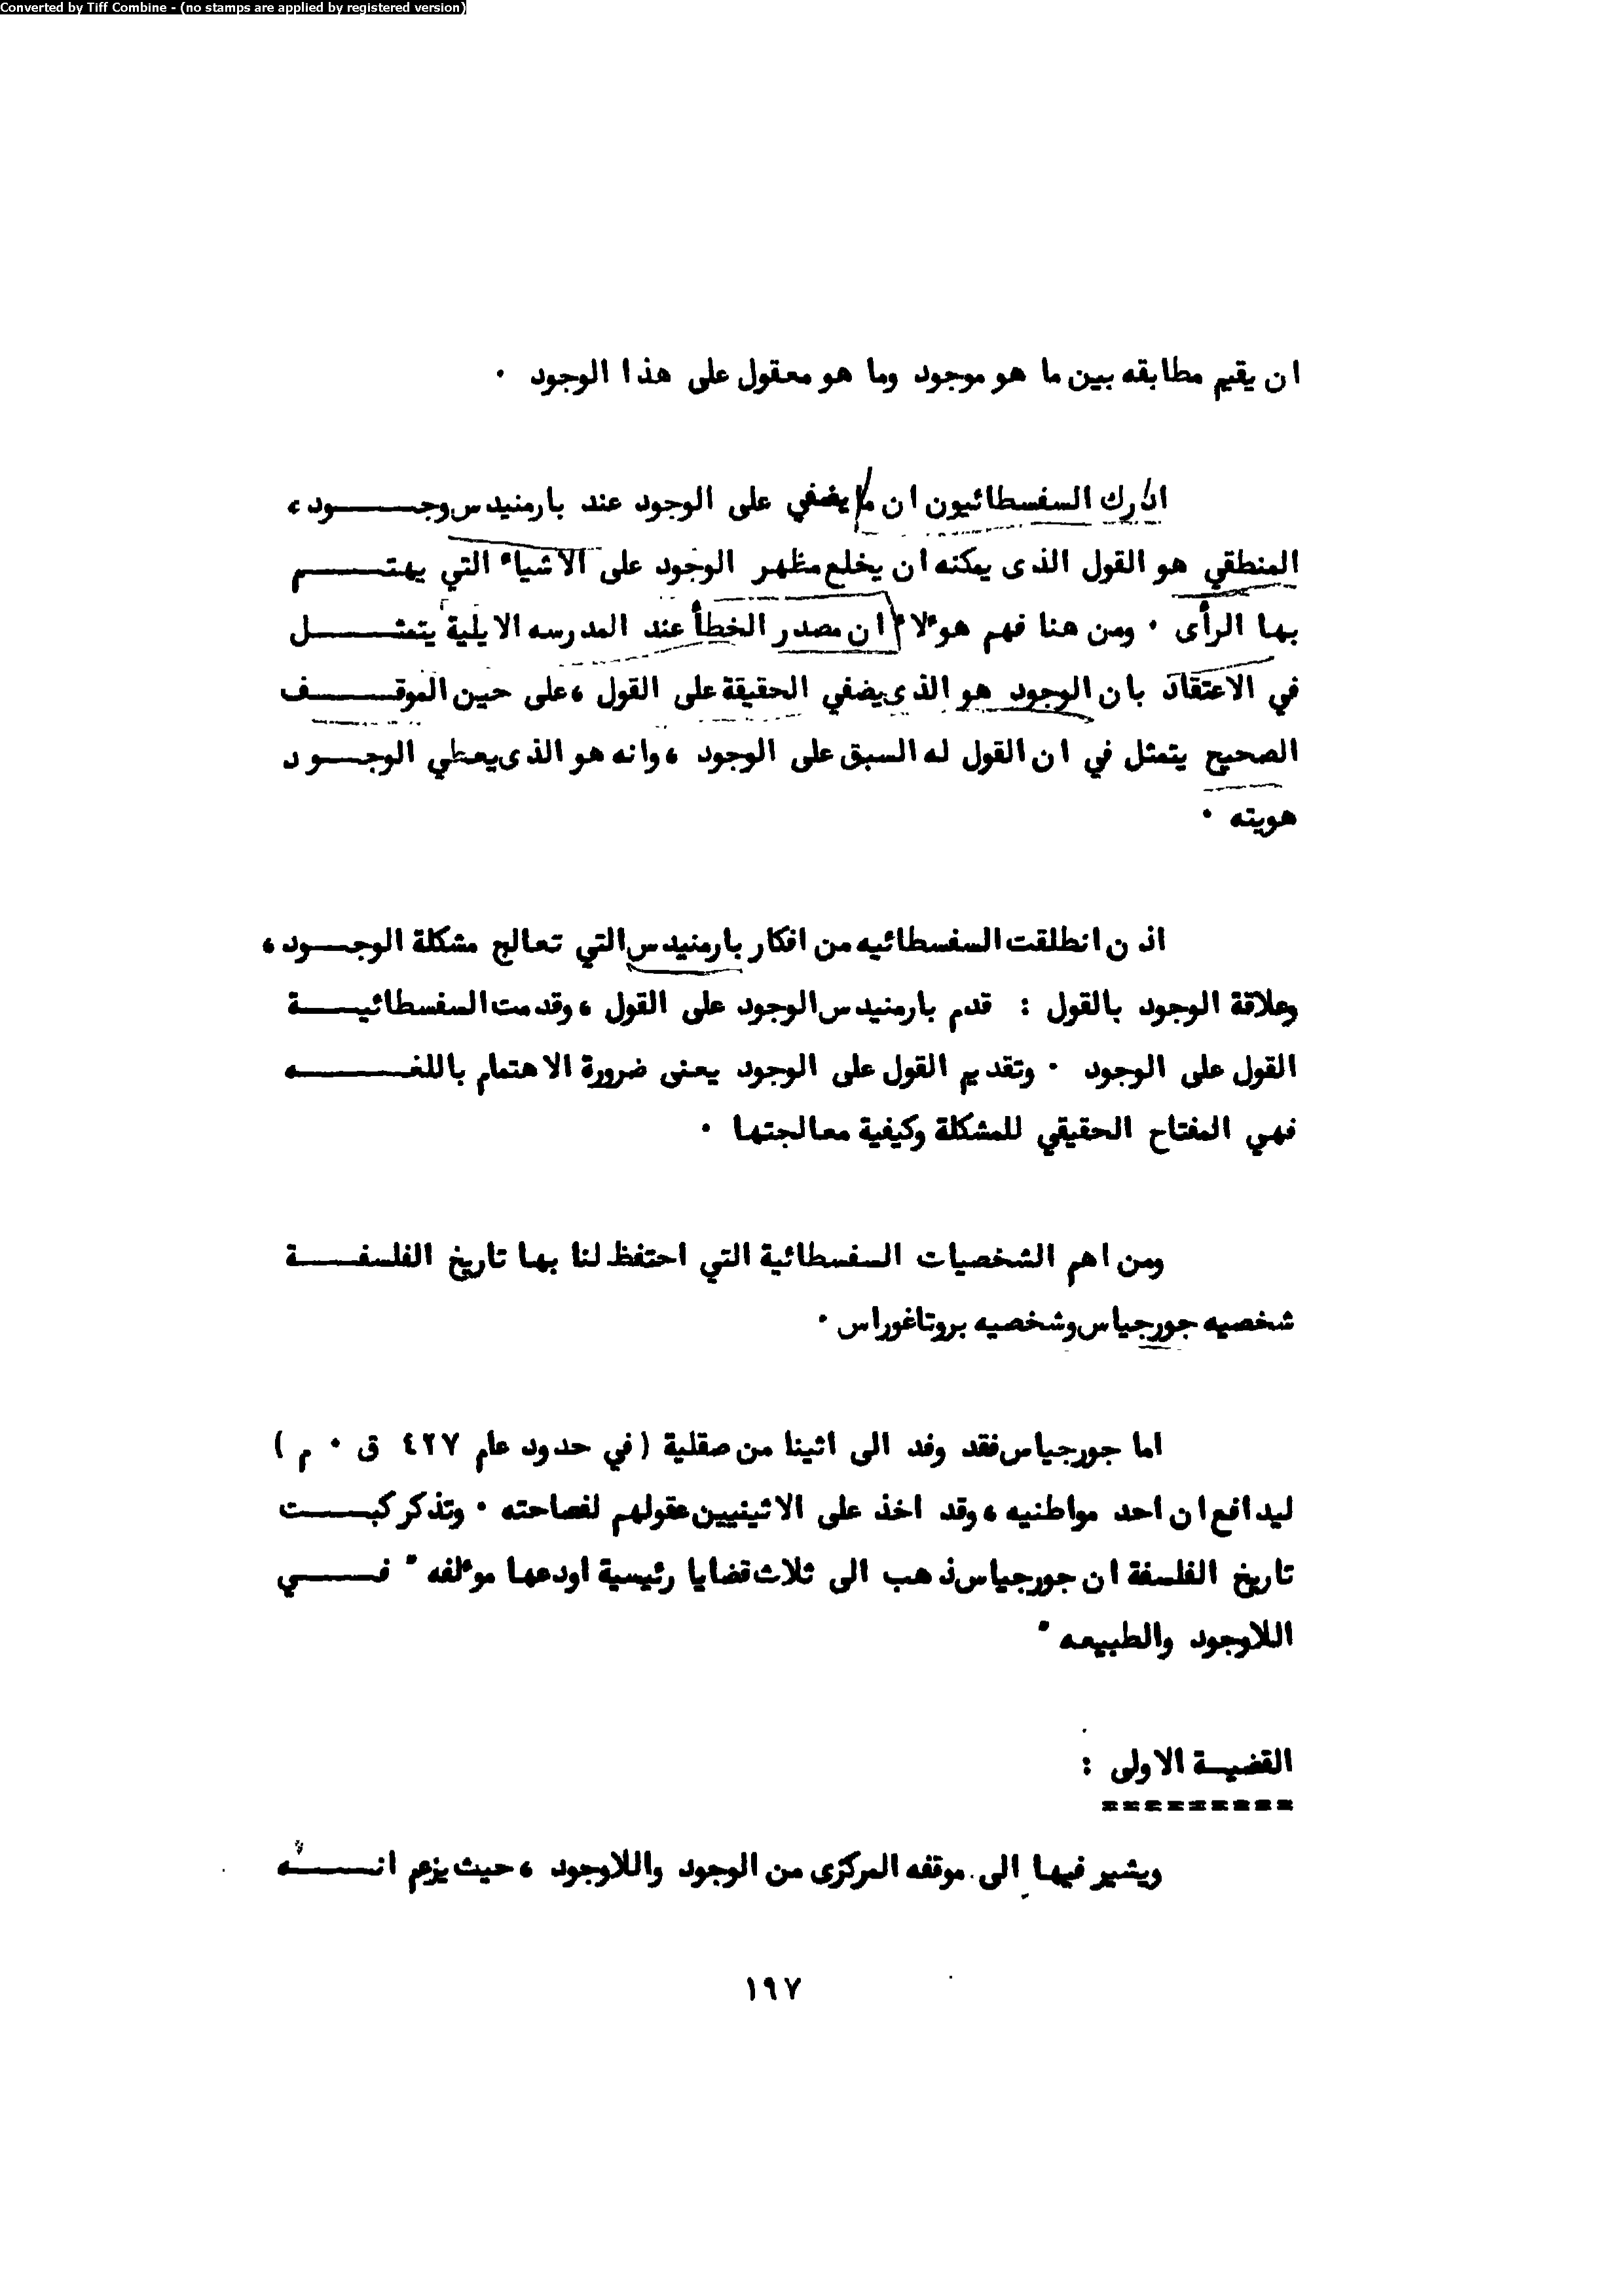 Converted by Tiff Combine - (no stamps are applied by registered version)
ان يقيم مطابقه بين ما هو موجود وما هو معقول على هذا الوجود ٠
ادرك السفسطائيون ان ما يضفي على الوجود عند بارمنيدس وجـــوده
المنطقي هو القول الذى يمكنه ان يخلع مظهر الوجود على الاشياء التي يهتـــم
بها الرأى ٠ ومن هنا فهم هوءلاء ان مصدر الخطأ عند المدرسه الايلية يتمثـــل
في الاعتقاد بان الوجود هو الذى يضفي الحقيقة على القول ، على حين الموقـــف
الصحيح يتمثل في ان القول له السبق على الوجود ، وانه هو الذى يعطي الوجـــود
هويته ٠
اذن انطلقت السفسطائيه من افكار بارمنيدس التي تعالج مشكلة الوجـــود ،
وعلاقة الوجود بالقول : قدم بارمنيدس الوجود على القول ، وقدمت السفسطائيـــة
القول على الوجود ٠ وتقديم القول على الوجود يعنى ضرورة الاهتمام باللغـــه
فهي المفتاح الحقيقي للمشكلة وكيفية معالجتها ٠
ومن اهم الشخصيات السفسطائية التي احتفظ لنا بها تاريخ الفلسفـــة
شخصيه جورجياس وشخصيه بروتاغوراس ٠
اما جورجياس فقد وفد الى اثينا من صقلية ( في حدود عام ٤٢٧ ق ٠ م )
ليدافع ان احد مواطنيه ، وقد اخذ على الاثينيين عقولهم لفصاحته ٠ وتذكر كبـــت
تاريخ الفلسفة ان جورجياس ذهب الى ثلاث قضايا رئيسية اودعها موءلفه " فـــي
اللاوجود والطبيعه "
القضيـة الاولى :
=========
ويشير فيها الى موقفه المركزى من الوجود واللاوجود ، حيث يزعم انـــه
١٩٧